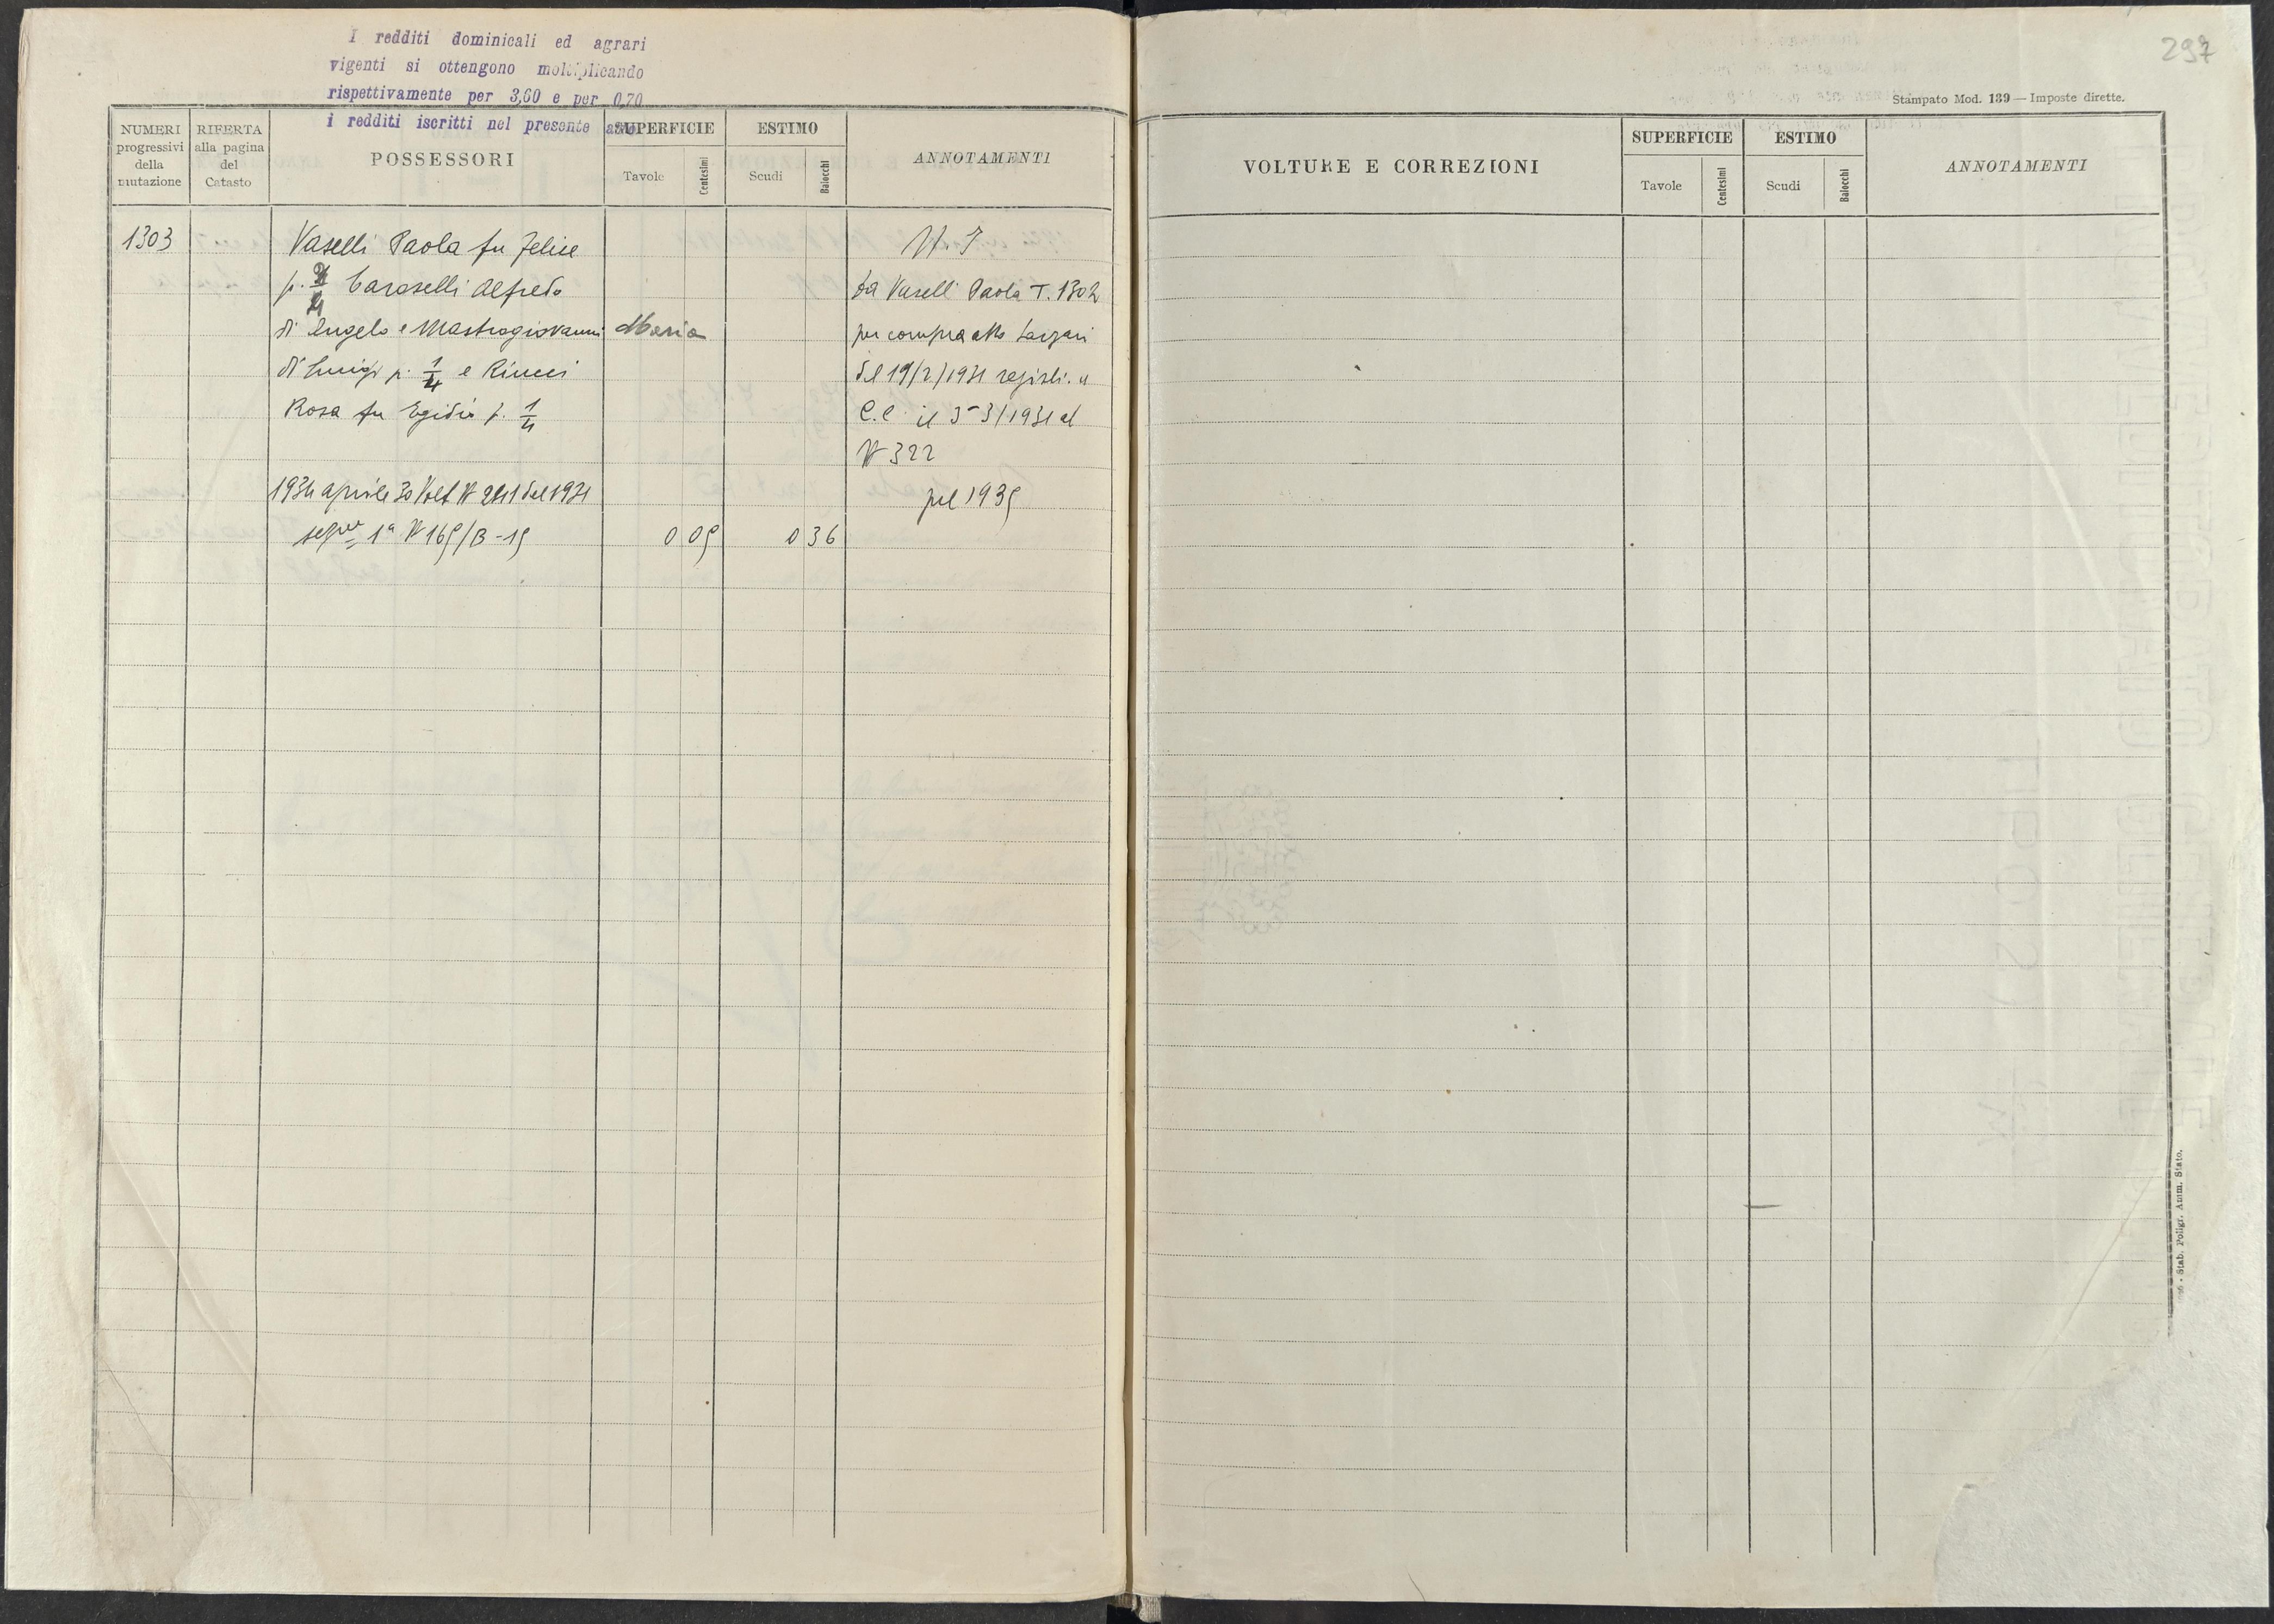 I redditi dominicali ed agrari
vigenti si ottengono moltiplicando
rispettivamente per 3,60 e per 0,70
i redditi iscritti nel presente atto
NUMERI progressivi della mutazione
RIFERTA alla pagina del Catasto
POSSESSORI
SUPERFICIE
Tavole
Centesimi
ESTIMO
Scudi
Baiocchi
ANNOTAMENTI
1303
Vaselli Paola fu Felice
p. 2/4 Caroselli Alfredo
di Angelo e Mastrogiovanni Maria
di Luigi p. 1/4 e Rinnci
Rosa fu Egidio p. 1/4
1934 aprile 30 Volt N 241 del 1931
sez 1ª N 165/B-15
0 05
0 36
da Vaselli Paola T. 1302
per compra atto
del 19/2/1931 registr. a
C.C. il 5-3/1931 al
N 322
pel 1935
297
Stampato Mod. 139 — Imposte dirette.
VOLTURE E CORREZIONI
SUPERFICIE
Tavole
Centesimi
ESTIMO
Scudi
Baiocchi
ANNOTAMENTI
Stab. Poligr. Amm. Stato.